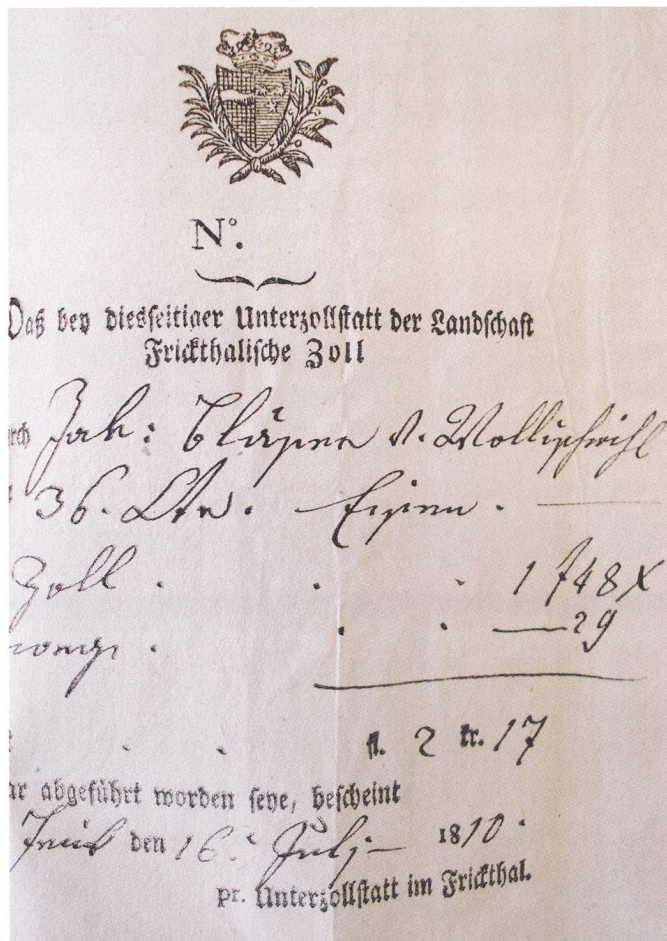 N°.
Daß bey diesseitiger Unterzollstatt der Landschaft
Frickthalische Zoll
rch Jak: Bläsner v. Wollischwihl
36. Ctn. Eisen. —
Zoll . . . 1 f 48 x
. . — 29
. . fl. 2 kr. 17
ar abgeführt worden seye, bescheint
Frick den 16. July 1810.
pr. Unterzollstatt im Frickthal.